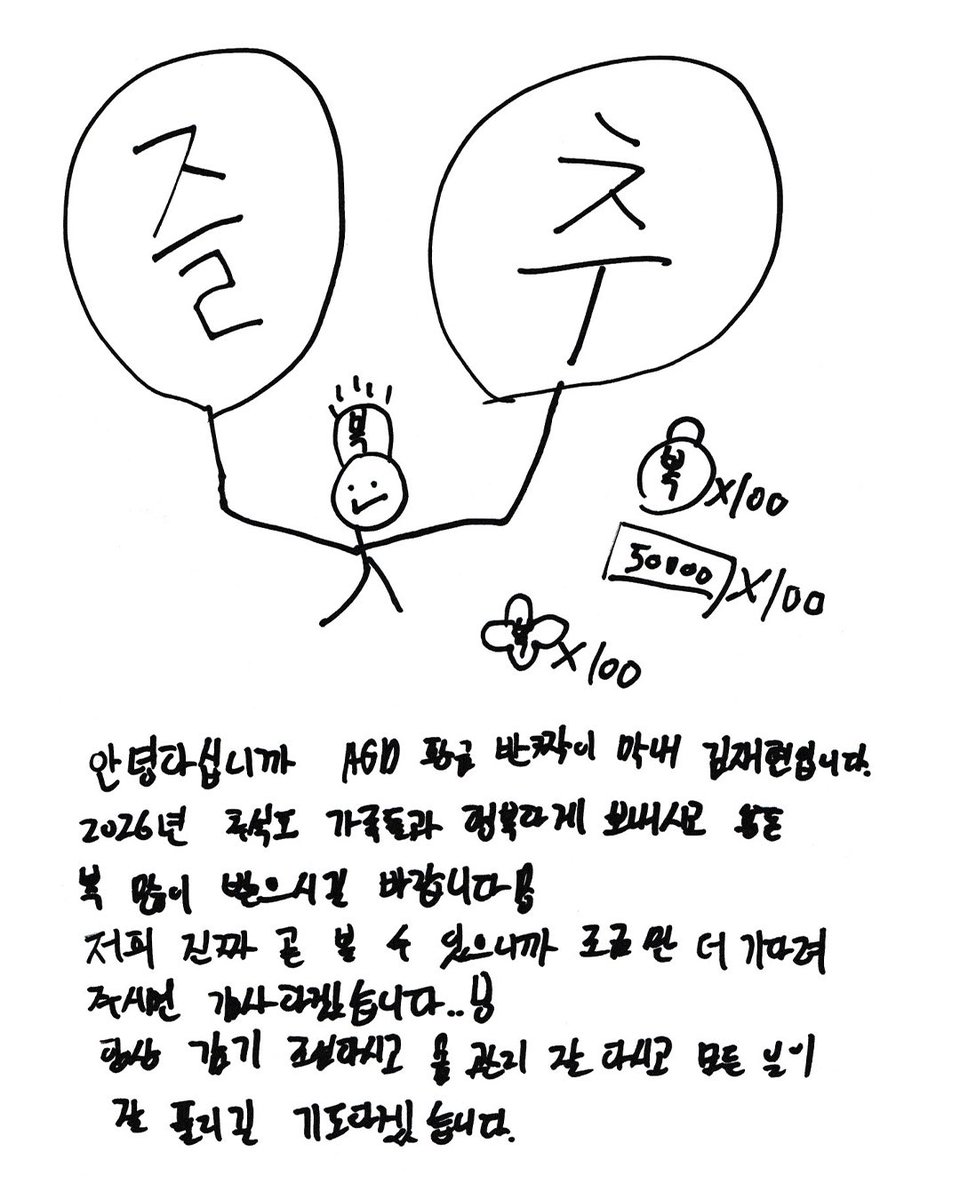 즐
추
복
복 X100
50000 X100
복 X100
안녕하십니까 AGD 황금 반짝이 막내 김재현입니다.
2026년 추석도 가족들과 행복하게 보내시고 모든
복 많이 받으시길 바랍니다!!
저희 진짜 곧 볼 수 있으니까 조금만 더 기다려
주시면 감사하겠습니다..!!
항상 감기 조심하시고 몸 관리 잘 하시고 모든 일이
잘 풀리길 기도하겠습니다.